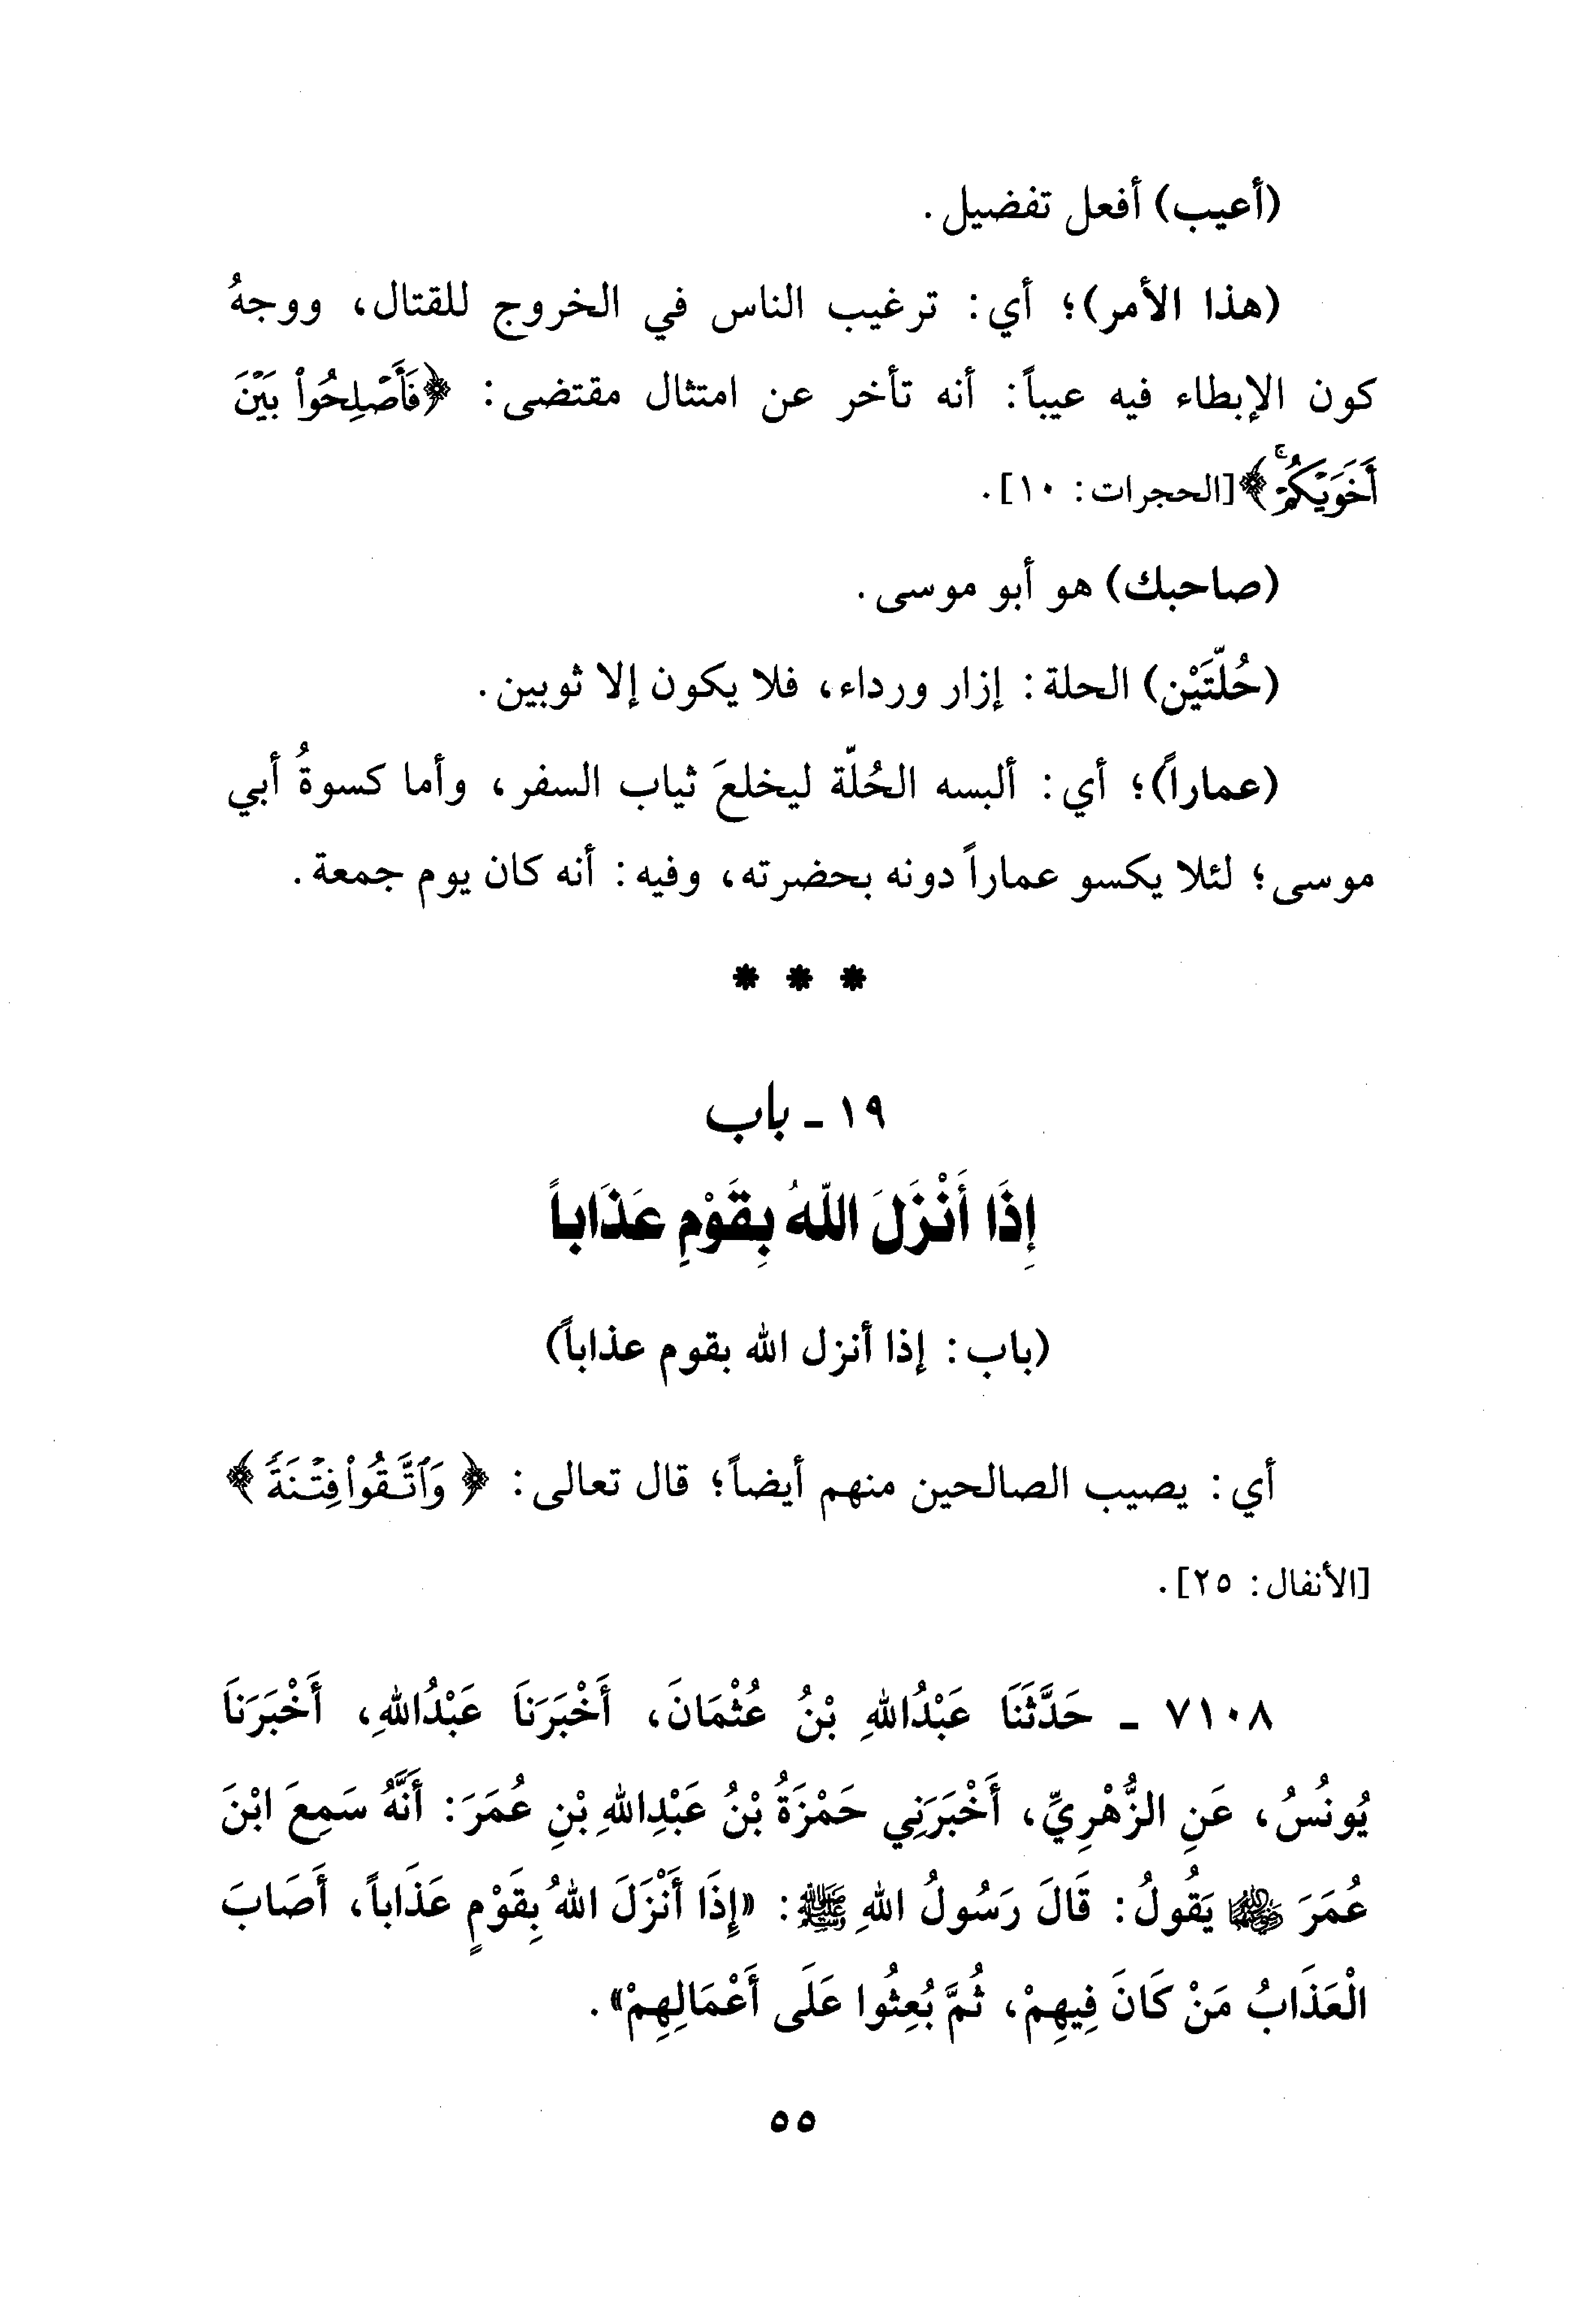 (أعيب) أفعل تفضيل.
(هذا الأمر)؛ أي: ترغيب الناس في الخروج للقتال، ووجهُ
كون الإبطاء فيه عيباً: أنه تأخر عن امتثال مقتضى: ﴿فَأَصْلِحُوا۟ بَيْنَ
أَخَوَيْكُمْ ۚ﴾[الحجرات: ١٠].
(صاحبك) هو أبو موسى.
(حُلّتَيْن) الحلة: إزار ورداء، فلا يكون إلا ثوبين.
(عماراً)؛ أي: ألبسه الحُلّة ليخلعَ ثياب السفر، وأما كسوةُ أبي
موسى؛ لئلا يكسو عماراً دونه بحضرته، وفيه: أنه كان يوم جمعة.
* * *
١٩ - باب
إِذَا أَنْزَلَ اللهُ بِقَوْمٍ عَذَاباً
(باب: إذا أنزل الله بقوم عذاباً)
أي: يصيب الصالحين منهم أيضاً؛ قال تعالى: ﴿وَٱتَّقُوا۟ فِتْنَةً﴾
[الأنفال: ٢٥].
٧١٠٨ - حَدَّثَنَا عَبْدُاللهِ بْنُ عُثْمَانَ، أَخْبَرَنَا عَبْدُاللهِ، أَخْبَرَنَا
يُونُسُ، عَنِ الزُّهْرِيِّ، أَخْبَرَنِي حَمْزَةُ بْنُ عَبْدِاللهِ بْنِ عُمَرَ: أَنَّهُ سَمِعَ ابْنَ
عُمَرَ ﵄ يَقُولُ: قَالَ رَسُولُ اللهِ ﷺ: «إِذَا أَنْزَلَ اللهُ بِقَوْمٍ عَذَاباً، أَصَابَ
الْعَذَابُ مَنْ كَانَ فِيهِمْ، ثُمَّ بُعِثُوا عَلَى أَعْمَالِهِمْ».
٥٥